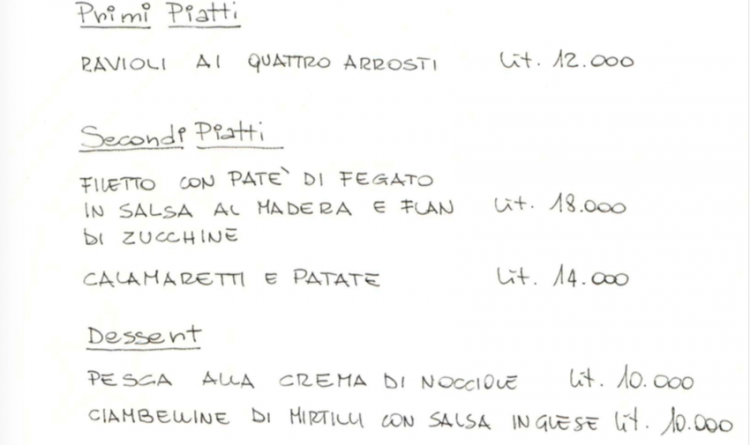 Primi Piatti
RAVIOLI AI QUATTRO ARROSTI Lit. 12.000
Secondi Piatti
FILETTO CON PATE' DI FEGATO
IN SALSA AL MADERA E FLAN Lit. 18.000
DI ZUCCHINE
CALAMARETTI E PATATE Lit. 14.000
Dessert
PESCA ALLA CREMA DI NOCCIOLE Lit. 10.000
CIAMBELLINE DI MIRTILLI CON SALSA INGLESE Lit. 10.000